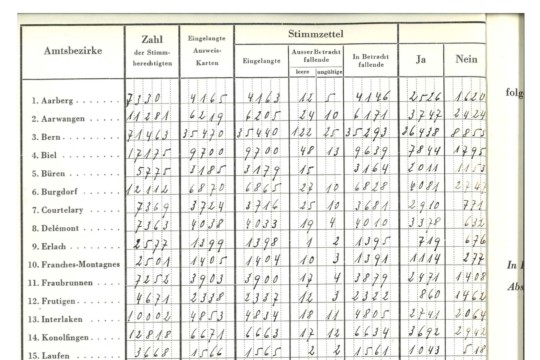 Amtsbezirke
Zahl
der Stimm-
berechtigten
Eingelangte
Ausweis-
Karten
Stimmzettel
Eingelangte
Ausser Betracht
fallende
leere ungültige
In Betracht
fallende
Ja
Nein
1. Aarberg . . . . . . . 7330 4165 4163 12 5 4146 2526 1620
2. Aarwangen . . . . . 11281 6219 6205 24 10 6171 3747 2424
3. Bern . . . . . . . . . 71463 35470 35440 122 25 35293 26438 8855
4. Biel . . . . . . . . . 17175 9700 9700 48 13 9639 7844 1795
5. Büren . . . . . . . . 5775 3185 3179 15 3164 2011 1153
6. Burgdorf . . . . . . 12112 6870 6865 27 10 6828 4081 2747
7. Courtelary . . . . . 7369 3724 3716 25 10 3681 2910 771
8. Delémont . . . . . . 7363 4038 4033 19 4 4010 3378 632
9. Erlach . . . . . . . . 2577 1399 1398 1 2 1395 719 676
10. Franches-Montagnes 2501 1405 1404 10 3 1391 1114 277
11. Fraubrunnen . . . . 7252 3903 3900 17 4 3879 2471 1408
12. Frutigen . . . . . . 4671 2338 2337 12 3 2322 860 1462
13. Interlaken . . . . . 10002 4853 4834 18 11 4805 2741 2064
14. Konolfingen . . . . 12818 6671 6663 17 12 6634 3692 2942
15. Laufen . . . . . . . 3668 1566 1565 2 2 1561 1043 518
folg
Abs